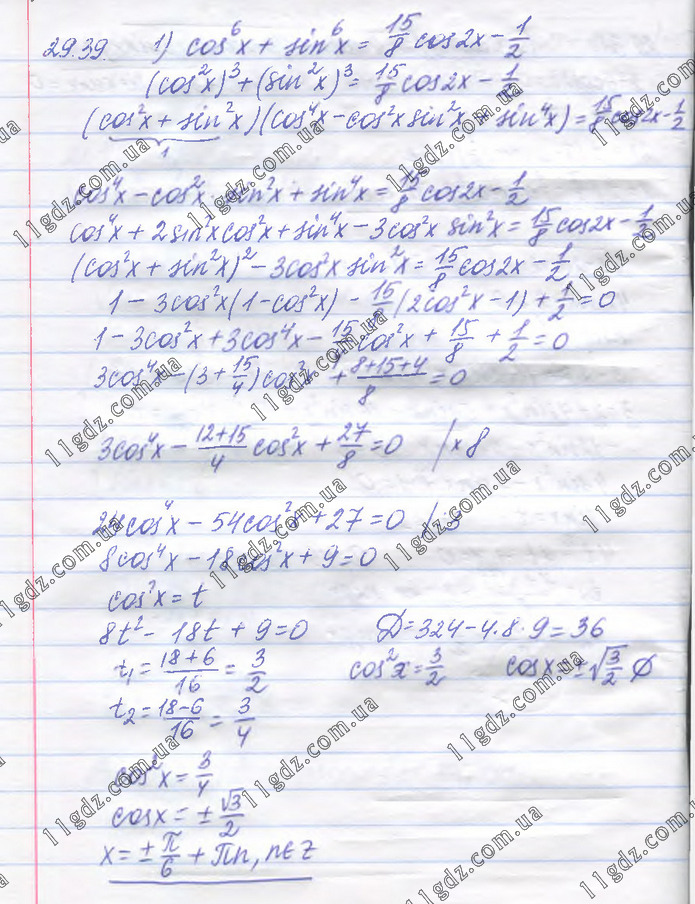 29.39. 1) cos⁶x + sin⁶x = 15/8 cos2x − 1/2
(cos²x)³ + (sin²x)³ = 15/8 cos2x − 1/2
(cos²x + sin²x)(cos⁴x − cos²x sin²x + sin⁴x) = 15/8 cos2x − 1/2
1
cos⁴x − cos²x sin²x + sin⁴x = 15/8 cos2x − 1/2
cos⁴x + 2sin²x cos²x + sin⁴x − 3cos²x sin²x = 15/8 cos2x − 1/2
(cos²x + sin²x)² − 3cos²x sin²x = 15/8 cos2x − 1/2
1 − 3cos²x(1 − cos²x) − 15/8 (2cos²x − 1) + 1/2 = 0
1 − 3cos²x + 3cos⁴x − 15/4 cos²x + 15/8 + 1/2 = 0
3cos⁴x − (3 + 15/4)cos²x + (8+15+4)/8 = 0
3cos⁴x − (12+15)/4 cos²x + 27/8 = 0 /×8
24cos⁴x − 54cos²x + 27 = 0 /:3
8cos⁴x − 18cos²x + 9 = 0
cos²x = t
8t² − 18t + 9 = 0 D = 324 − 4·8·9 = 36
t₁ = (18+6)/16 = 3/2 cos²x = 3/2 cosx = ±√(3/2) ∅
t₂ = (18−6)/16 = 3/4
cos²x = 3/4
cosx = ± √3/2
x = ± π/6 + πn, n∈Z
11gdz.com.ua